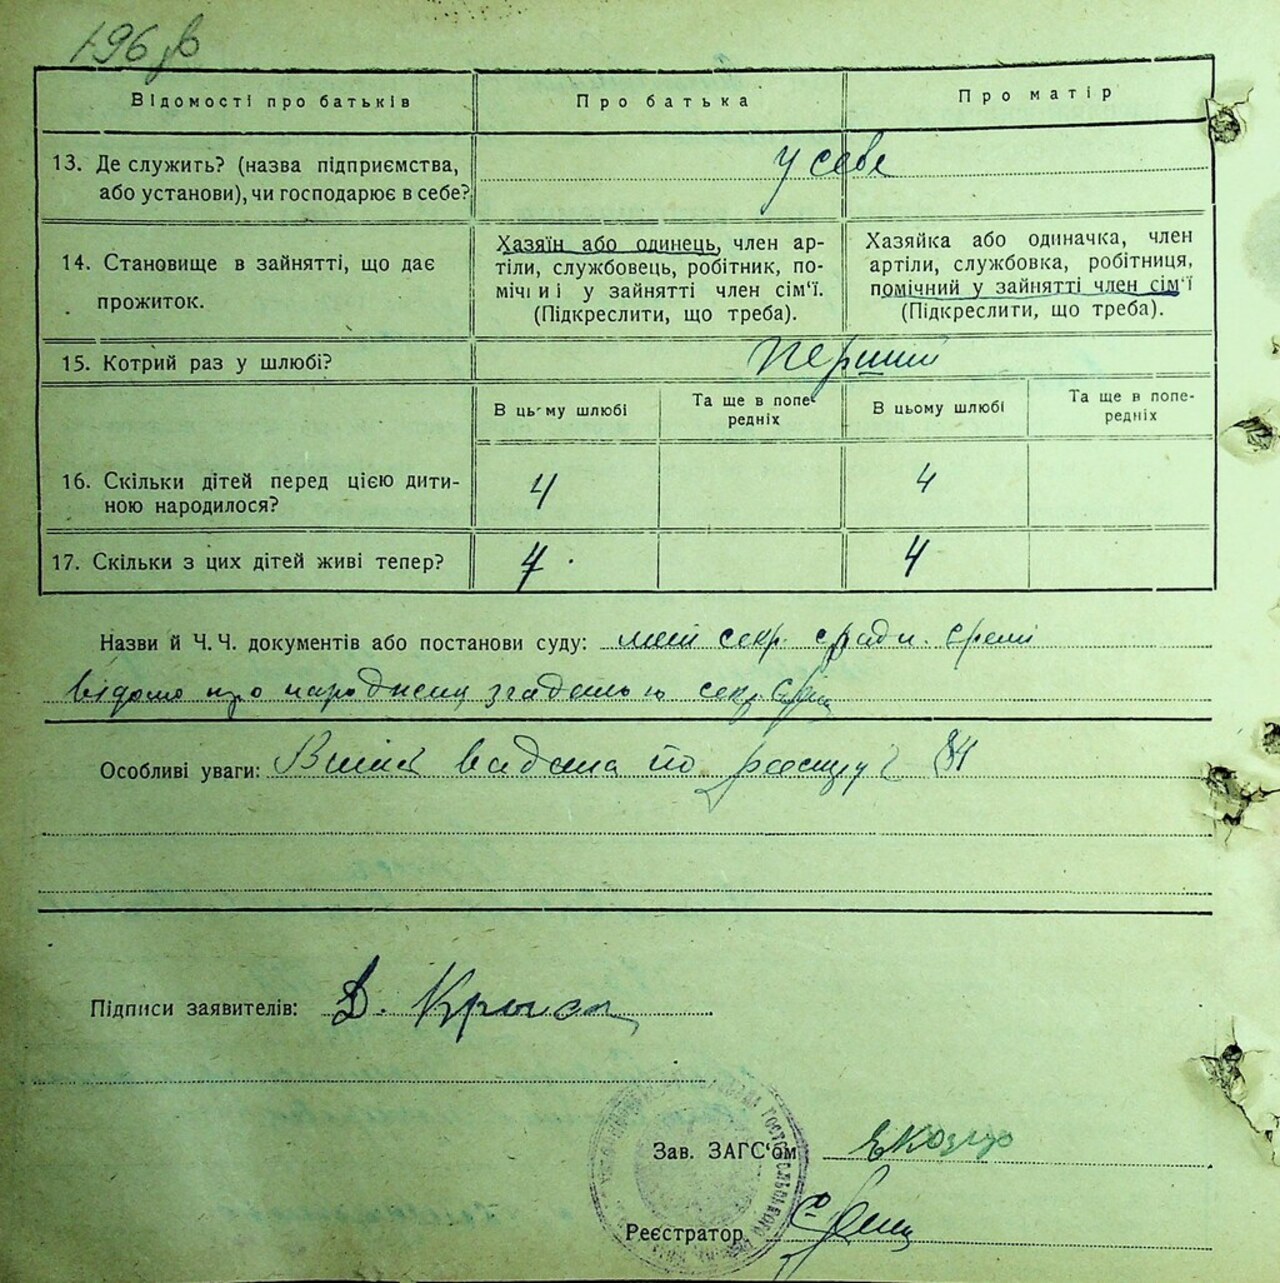 196
Відомості про батьків
Про батька
Про матір
13. Де служить? (назва підприємства,
або установи), чи господарює в себе?
у себе
14. Становище в зайнятті, що дає
прожиток.
Хазяїн або одинець, член ар-
тіли, службовець, робітник, по-
мічний у зайнятті член сім'ї.
(Підкреслити, що треба).
Хазяйка або одиначка, член
артіли, службовка, робітниця,
помічний у зайнятті член сім'ї
(Підкреслити, що треба).
15. Котрий раз у шлюбі?
Перший
В цьому шлюбі
Та ще в попе-
редніх
В цьому шлюбі
Та ще в попе-
редніх
16. Скільки дітей перед цією дити-
ною народилося?
4
4
17. Скільки з цих дітей живі тепер?
4
4
Назви й Ч. Ч. документів або постанови суду: секр.
про секр.
Особливі уваги: видана по 84
Підписи заявителів:
Зав. ЗАГС'ом
Реєстратор